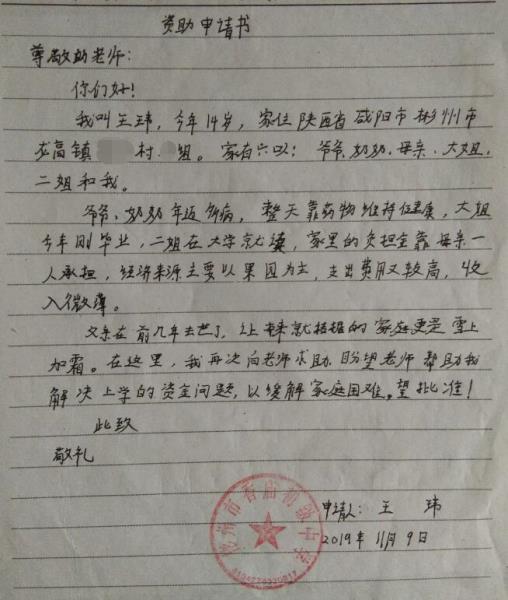 资助申请书
尊敬的老师：
你们好！
我叫王玮，今年14岁，家住陕西省咸阳市彬州市
高镇 村 组。家有六口：爷爷、奶奶、母亲、大姐、
二姐和我。
爷爷、奶奶年迈多病，整天靠药物维持健康，大姐
今年刚毕业，二姐在大学就读，家里的负担全靠母亲一
人承担，经济来源主要以果园为主，支出费用又较高，收
入微薄。
父亲在前几年去世了，让本来就拮据的家庭更是雪上
加霜。在这里，我再次向老师求助，盼望老师帮助我
解决上学的资金问题，以缓解家庭困难。望批准！
此致
敬礼
彬州市香庙初级中学
申请人：王玮
2019年11月9日